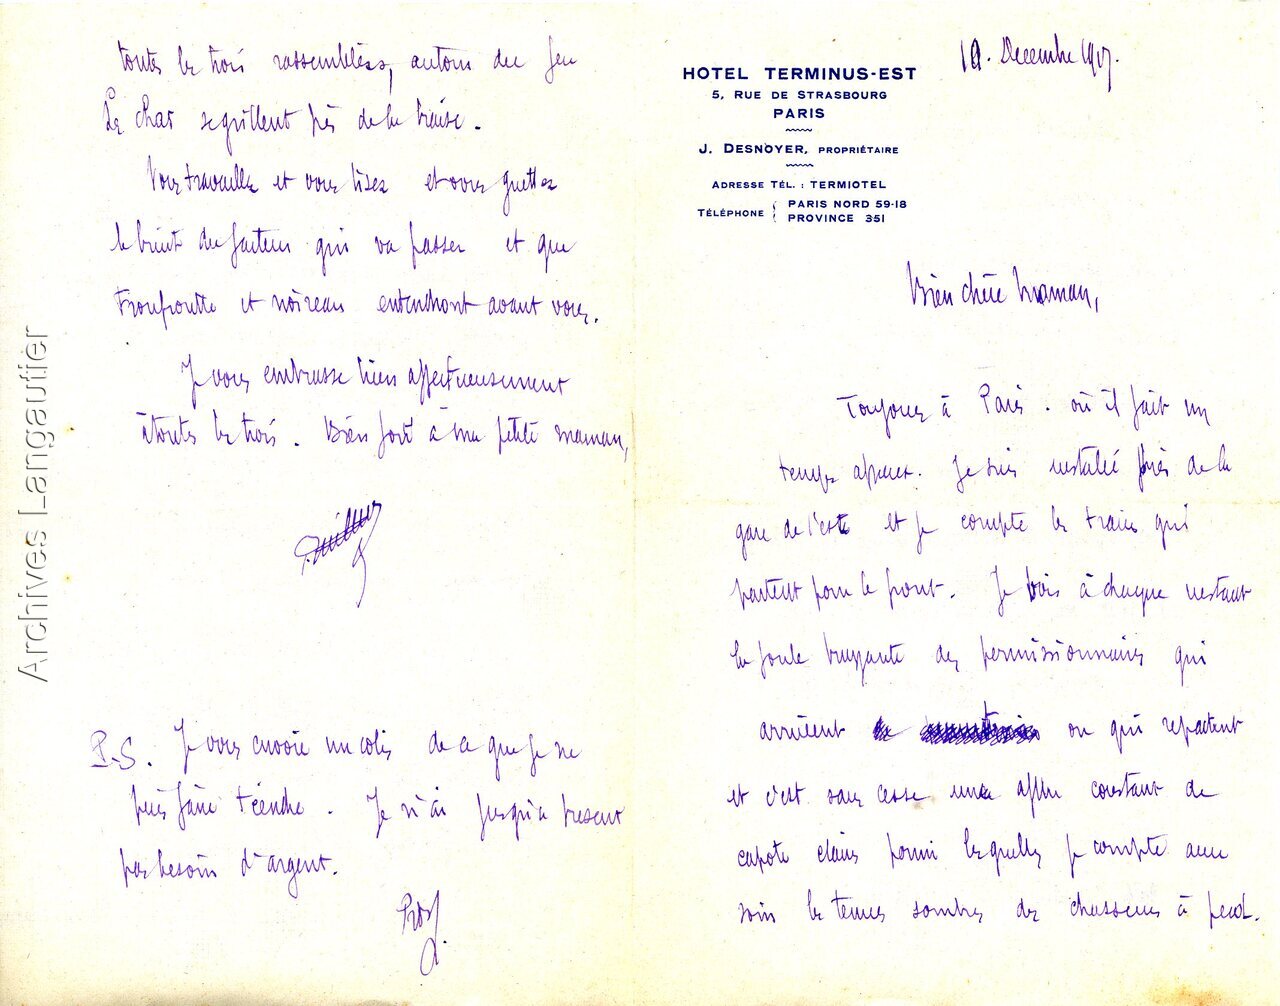 HOTEL TERMINUS-EST
5, RUE DE STRASBOURG
PARIS
J. DESNOYER, PROPRIÉTAIRE
ADRESSE TÉL. : TERMIOTEL
TÉLÉPHONE { PARIS NORD 59-18
PROVINCE 351
Decembre 1917.
Bien chère Maman,
Toujours à Paris. où il fait un
temps affreux. Je suis installé près de la
gare de l'est et je compte les trains qui
partent pour le front. Je vois à chaque instant
la foule bruyante des permissionnaires qui
arrivent ou qui repartent
et c'est sans cesse un afflux constant de
capote claires parmi lesquelles je compte avec
soin les tenues sombres des chasseurs à pied.
toutes les trois rassemblées, autour du feu
Les chats se grillent près de la braise.
Vous travaillez et vous lisez et vous guettez
le bruit du facteur qui va passer et que
Froufroutte et noireau entendront avant vous.
Je vous embrasse bien affectueusement
à toutes les trois. Bien fort à ma petite maman,
P.S. Je vous envoie un colis de ce que je ne
puis faire teindre. Je n'ai jusqu'à present
pas besoin d'argent.
Archives Langautier